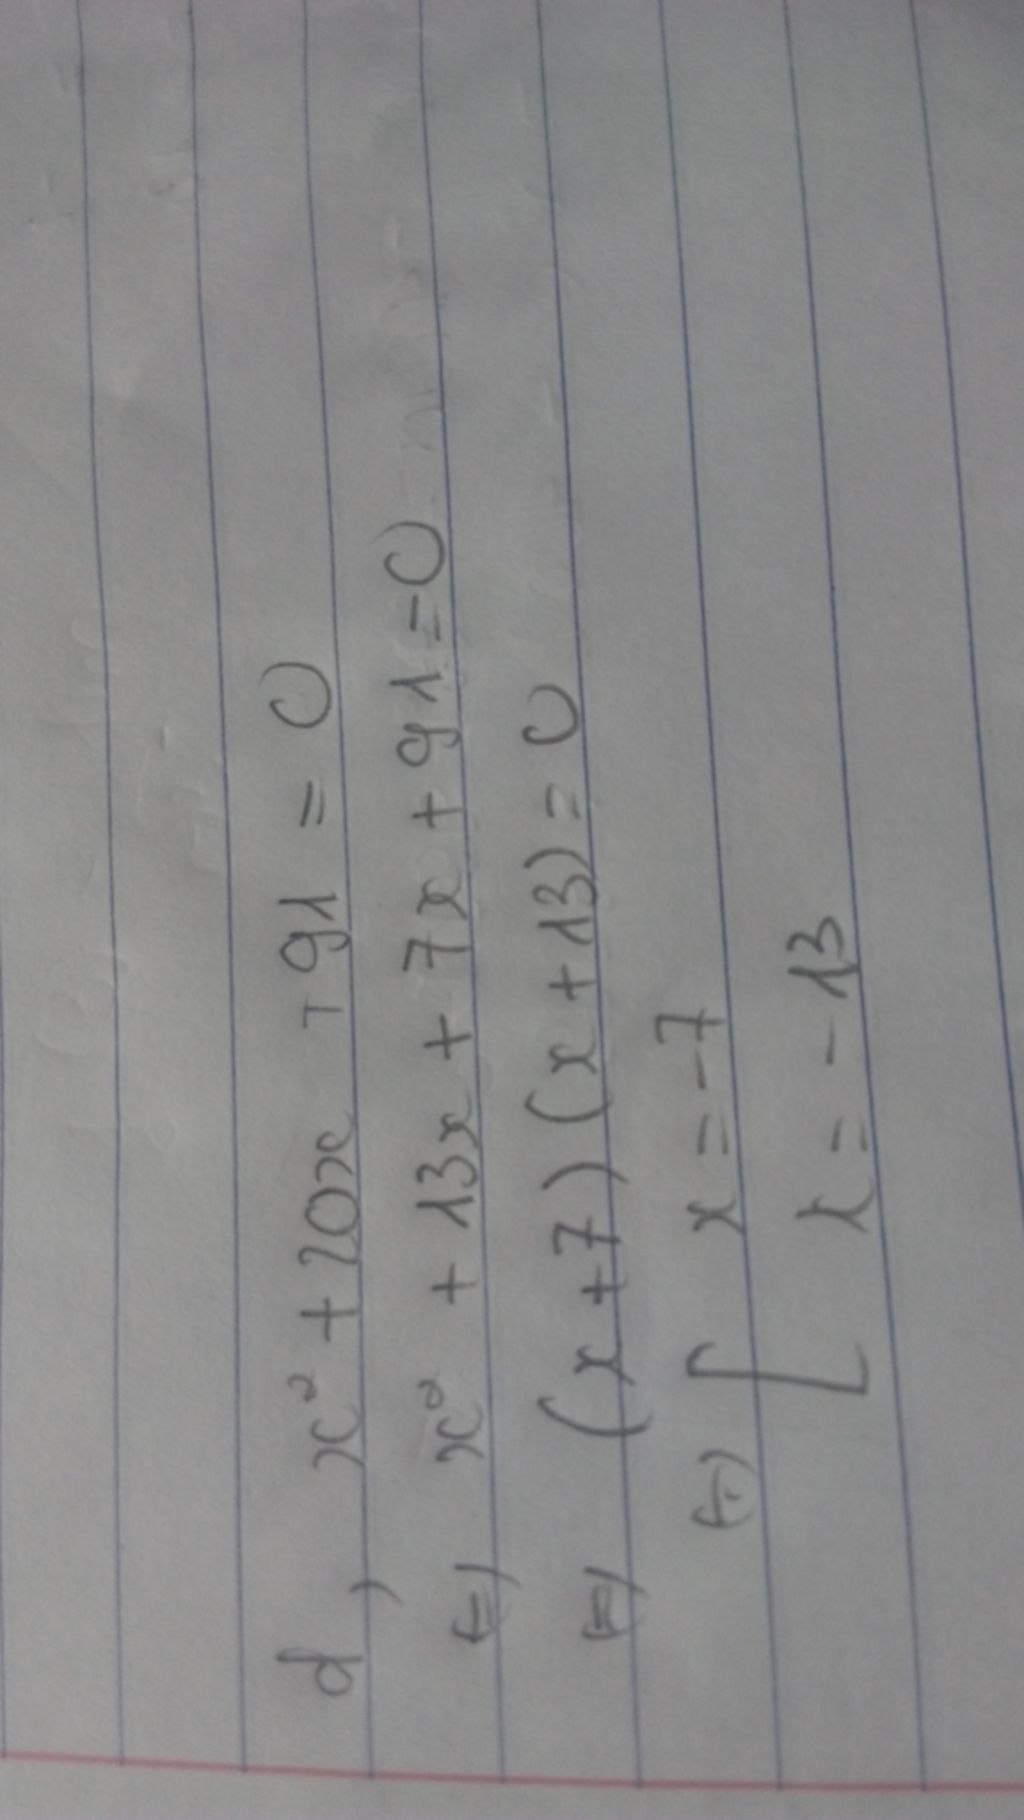 d) x² + 20x + 91 = 0
(=) x² + 13x + 7x + 91 = 0
(=) (x + 7) (x + 13) = 0
(=) [ x = -7
x = -13